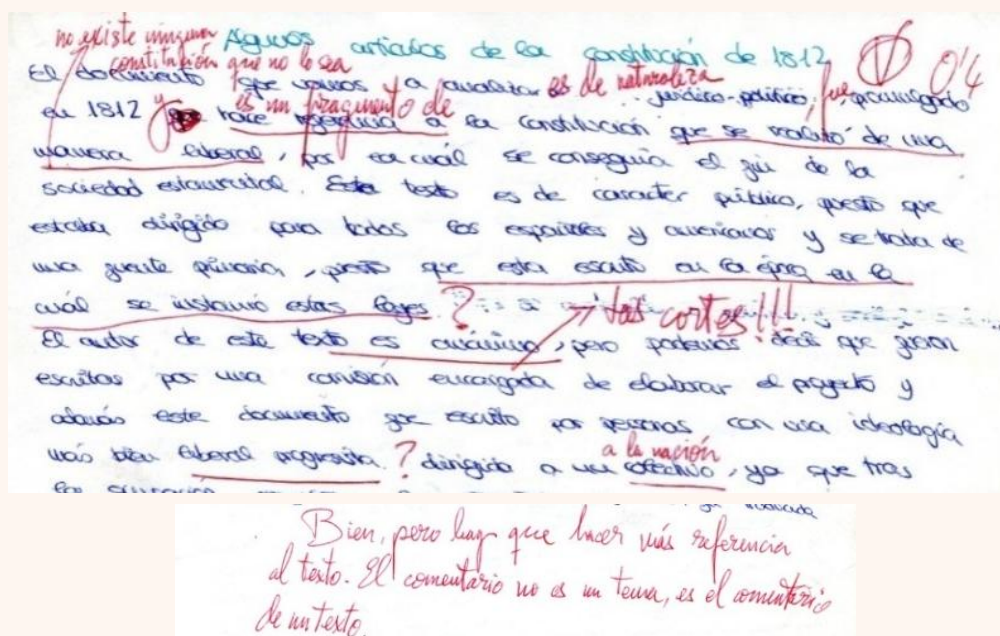 no existe ninguna
constitución que no lo sea
Algunos artículos de la constitución de 1812
V 0'4
El documento que vamos a analizar es de naturaleza jurídico-político, fue promulgado
en 1812 y es un fragmento de
hace referencia a la constitución que se realizó de una
manera liberal, por la cuál se conseguia el fin de la
sociedad estamental. Este texto es de caracter público, puesto que
estaba dirigido para todos los españoles y americanos y se trata de
una fuente primaria, puesto que esta escrito en la época en la
cuál se instauró estas leyes. ?
Las cortes!!!
El autor de este texto es anónimo, pero podemos decir que fueron
escritas por una comisión encargada de elaborar el proyecto y
además este documento fue escrito por personas con una ideología
a la nación
más bien liberal progresista. ? dirigido a un colectivo, ya que tras
Bien, pero hay que hacer más referencia
al texto. El comentario no es un tema, es el comentario
de un texto.